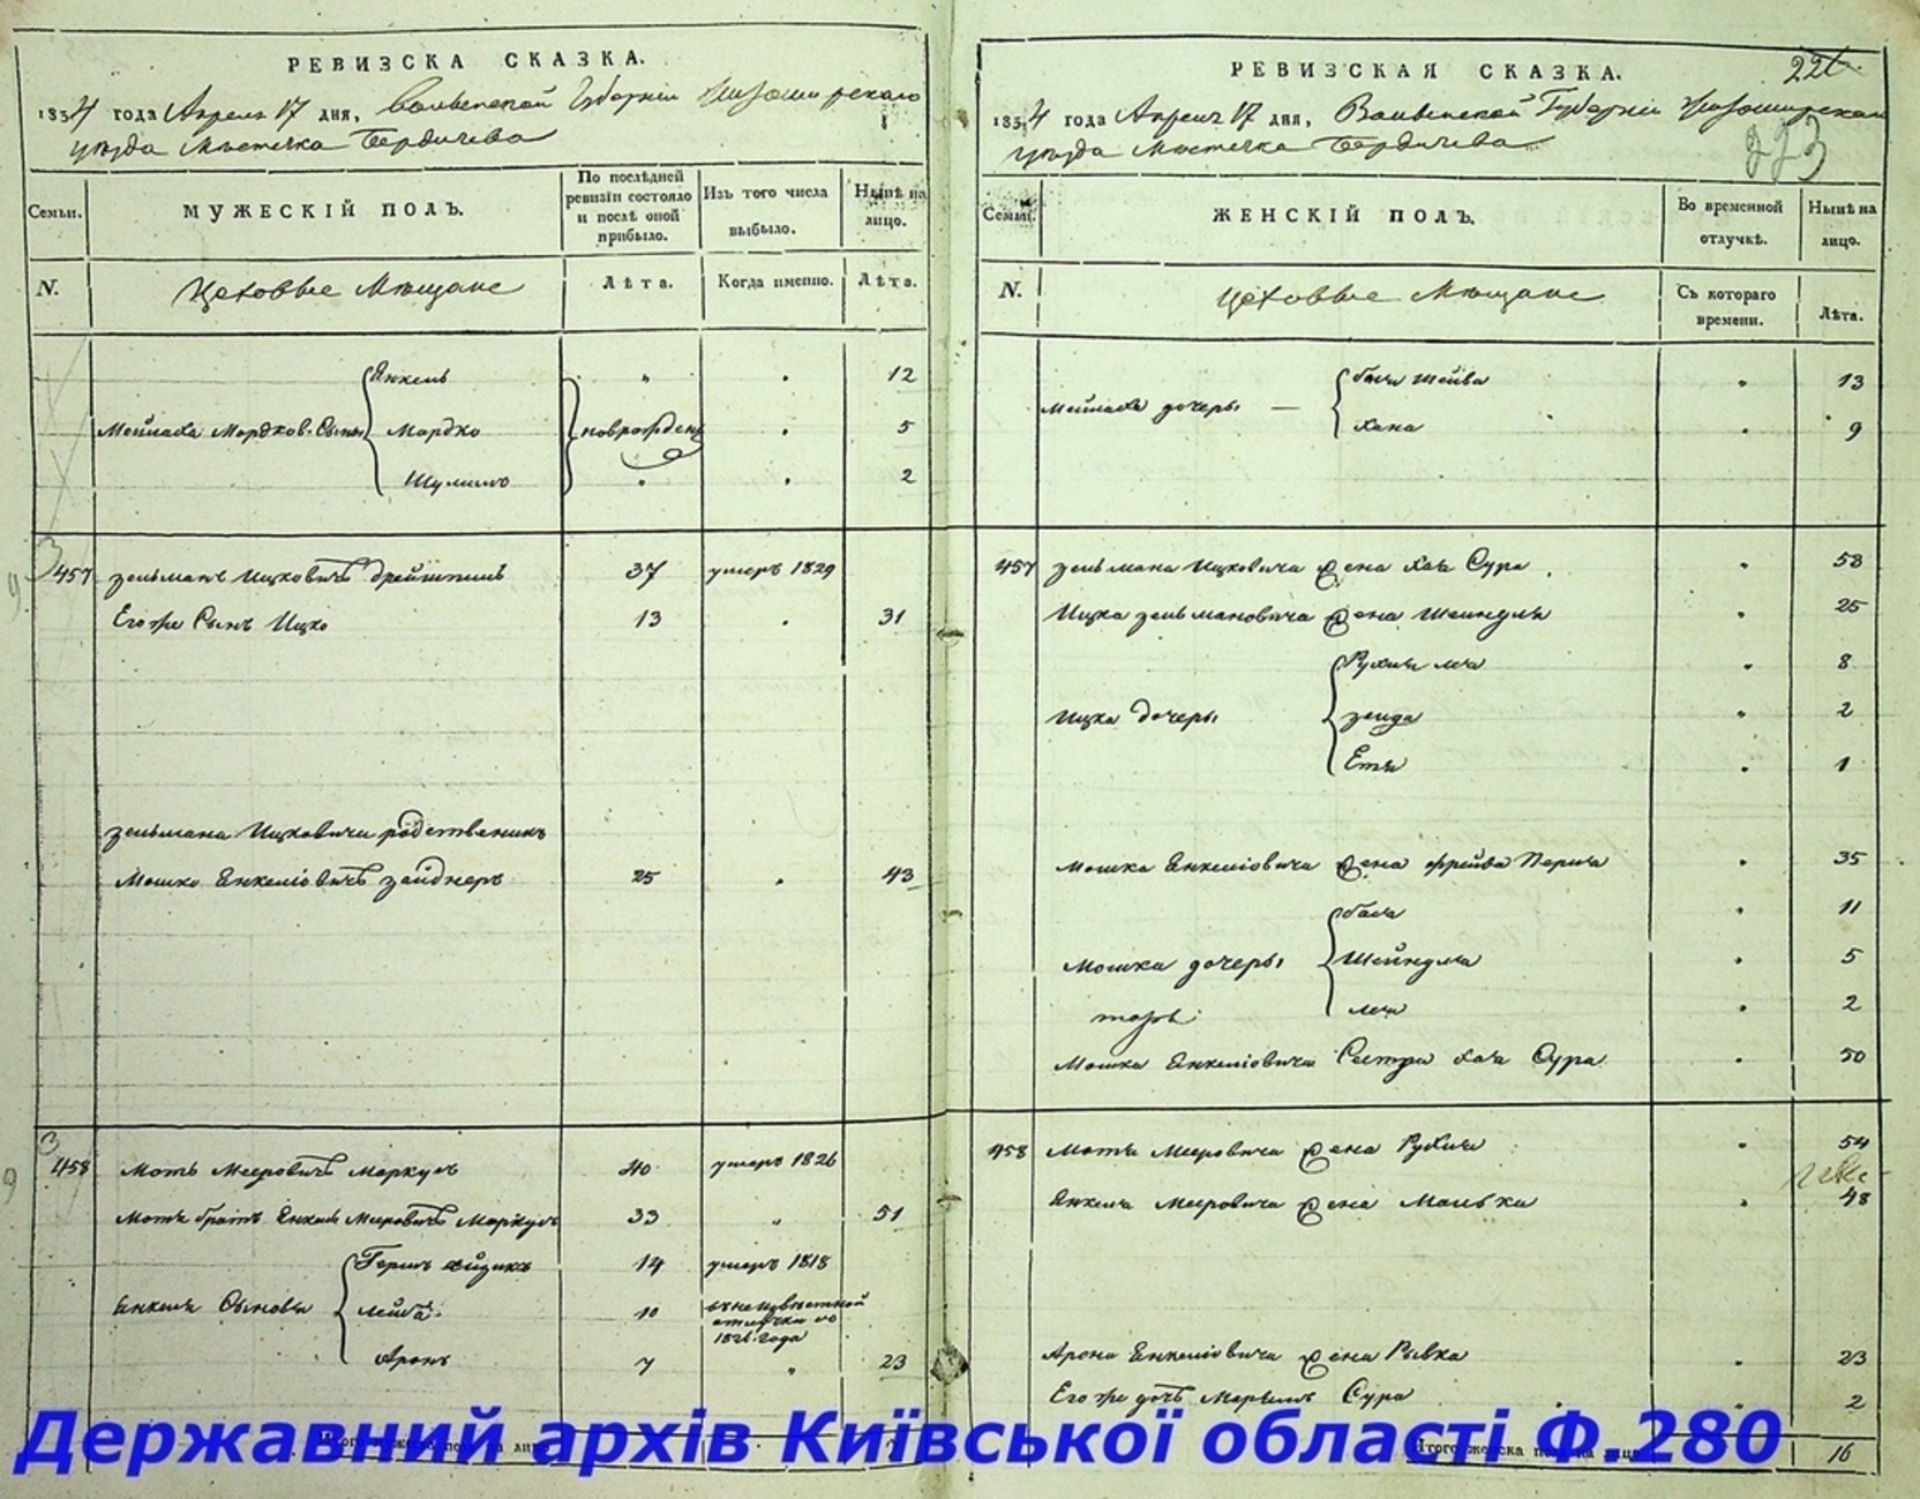 РЕВИЗСКА СКАЗКА.
1834 года Апреля 17 дня, Волынской Губернии Житомирскаго
уезда Местечка Бердичева
Семьи.
МУЖЕСКІЙ ПОЛЪ.
По послѣдней ревизіи состояло и послѣ оной прибыло.
Изъ того числа выбыло.
Нынѣ на лицо.
N.
Цеховые Мещане
Лѣта.
Когда именно.
Лѣта.
Янкель 12
Мордков. Сыны Мордко новрожден 5
Шулимъ 2
457 Зельманъ Ицковичъ 37 умеръ 1829
Его же Сынъ Ицко 13 31
Зельмана Ицковича родственикъ
Мошко Янкеліовичъ Зайднеръ 25 43
458 Моть Мееровичъ Маркусъ 40 умеръ 1826
Моти братъ Янкель Мееровичъ Маркусъ 33 51
Гершъ 14 умеръ 1818
Янкеля Сыновья Лейба 10 въ неизвѣстной отлучки года
Аронъ 7 23
РЕВИЗСКАЯ СКАЗКА.
226.
1834 года Апреля 17 дня, Волынской Губерніи Житомирскаго
223
уезда Местечка Бердичева
Семьи.
ЖЕНСКІЙ ПОЛЪ.
Во временной отлучкѣ.
Нынѣ на лицо.
N.
Цеховые Мещане
Съ котораго времени.
Лѣта.
дочеры Шейва 13
Хана 9
457 Зельмана Ицковича жена Хая Сура 58
Ицка Зельмановича жена Шейндля 25
Рухля Лея 8
Ицка дочеры Зелда 2
Етя 1
Мошка Янкеліовича жена Фрейда Перля 35
Бася 11
Мошка дочеры Шейндля 5
Лея 2
тожъ
Мошка Янкеліовича Сестра Хая Сура 50
458 Моти Мееровича жена Рухля 54
Янкеля Мееровича жена Малька 48
Арона Янкеліовича жена Рывка 23
Его же дочь Марьямъ Сура 2
Итого женска пола на лицо 16
Державний архів Київської області Ф.280